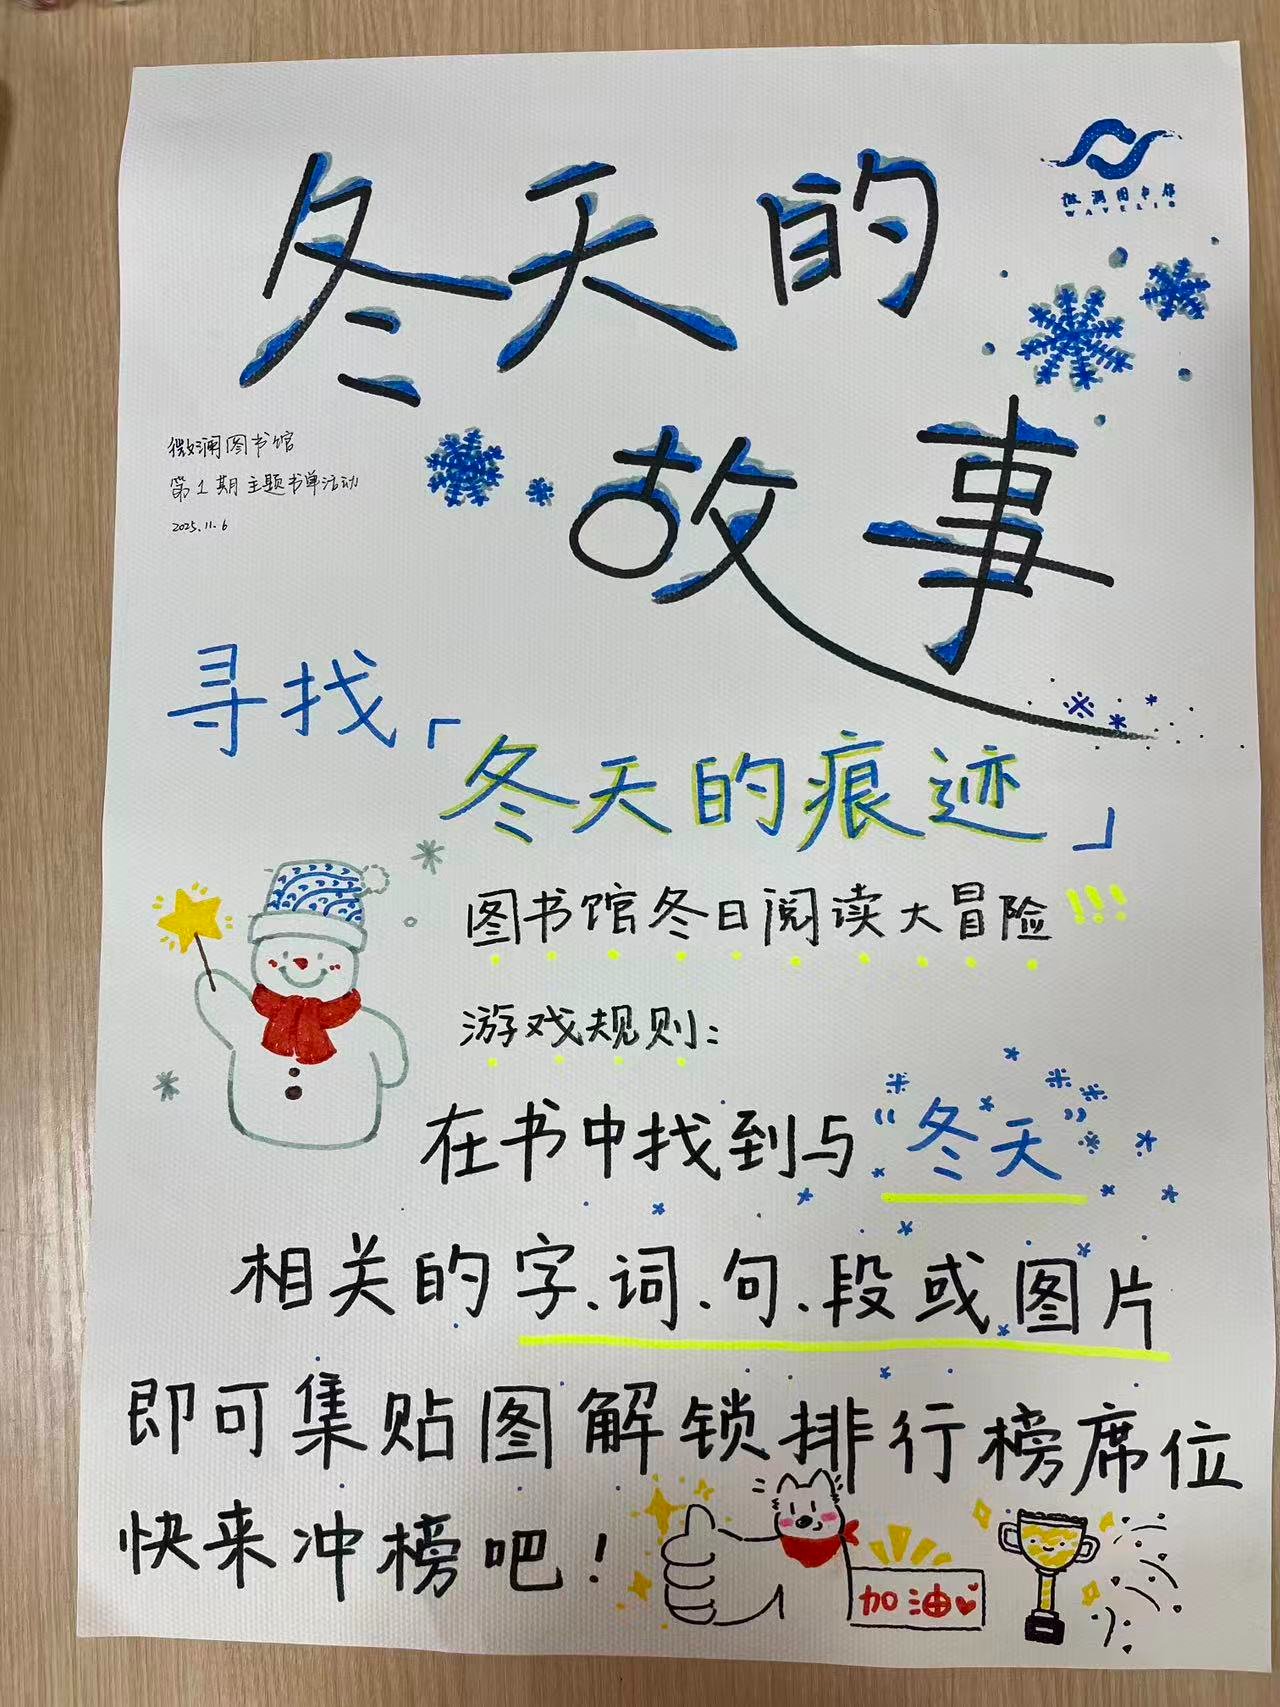 冬天的
微澜图书馆
WAVELIB
故事
微澜图书馆
第1期主题书单活动
2025.11.6
寻找「
冬天的痕迹」
图书馆冬日阅读大冒险!!!
游戏规则：
在书中找到与“冬天”
相关的字、词、句、段或图片
即可集贴图解锁排行榜席位
快来冲榜吧！
加油